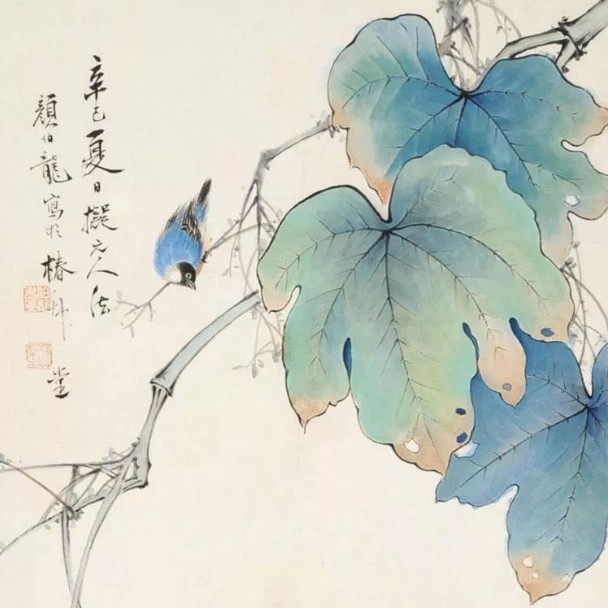 辛巳夏日擬元人法
顏伯龍寫於椿草堂